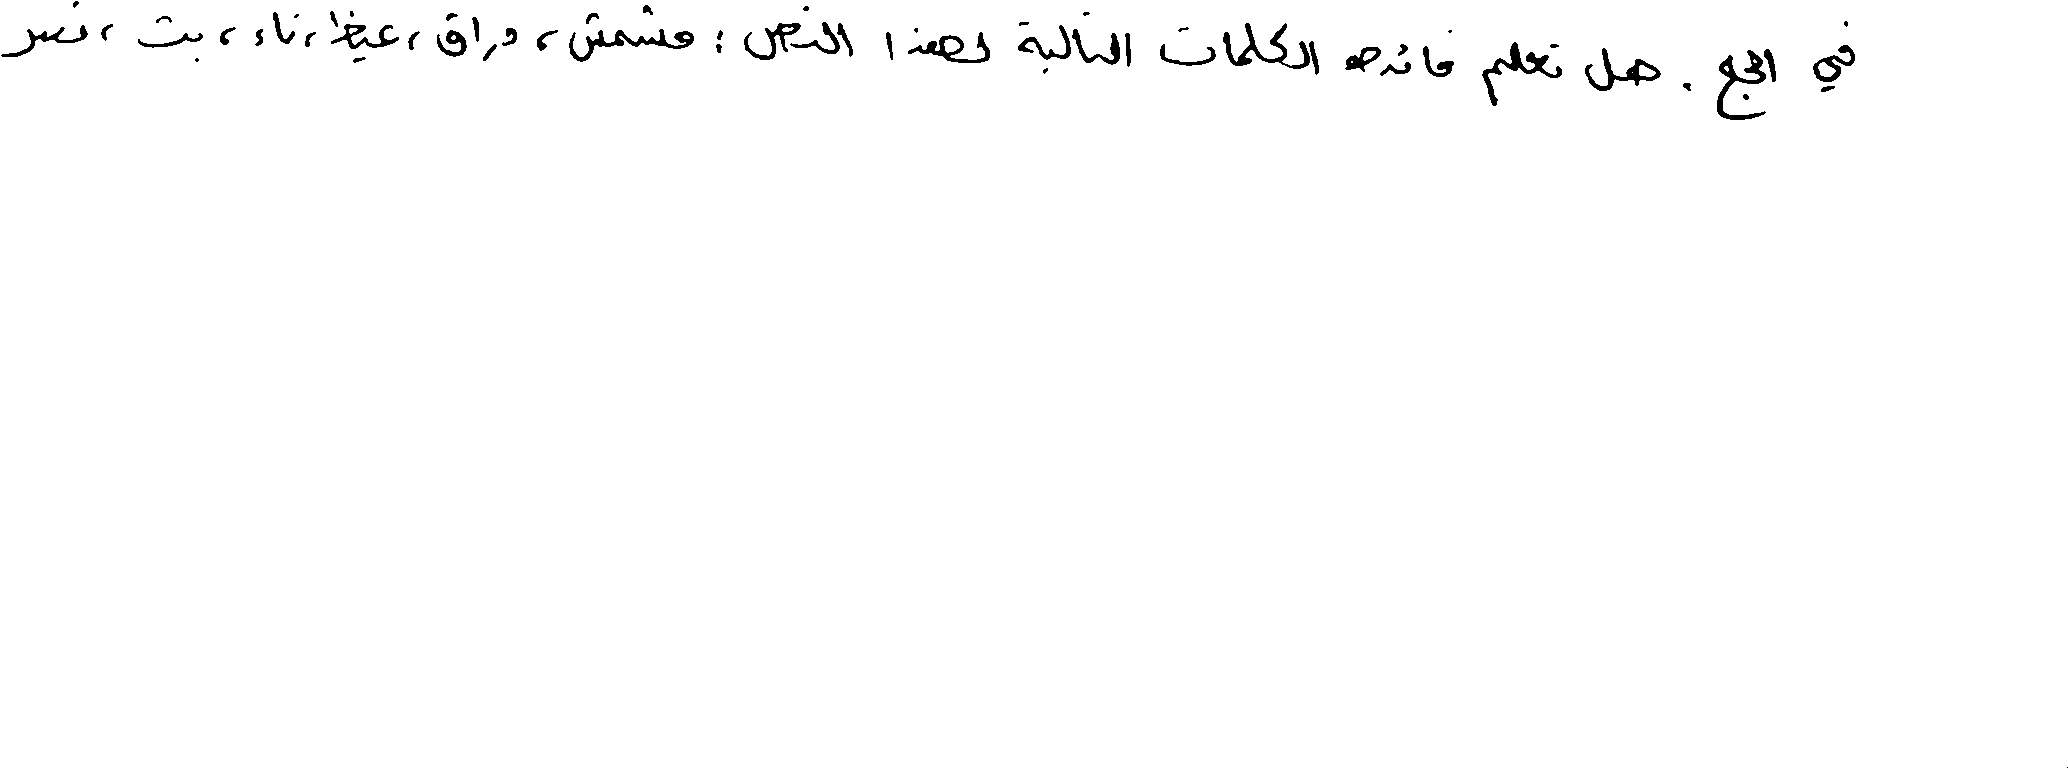 في الحج . هل تعلم فائدة الكلمات التالية لهذا النص : مشمش ، دراق ، غيظ ، ناء ، بت ، نسر